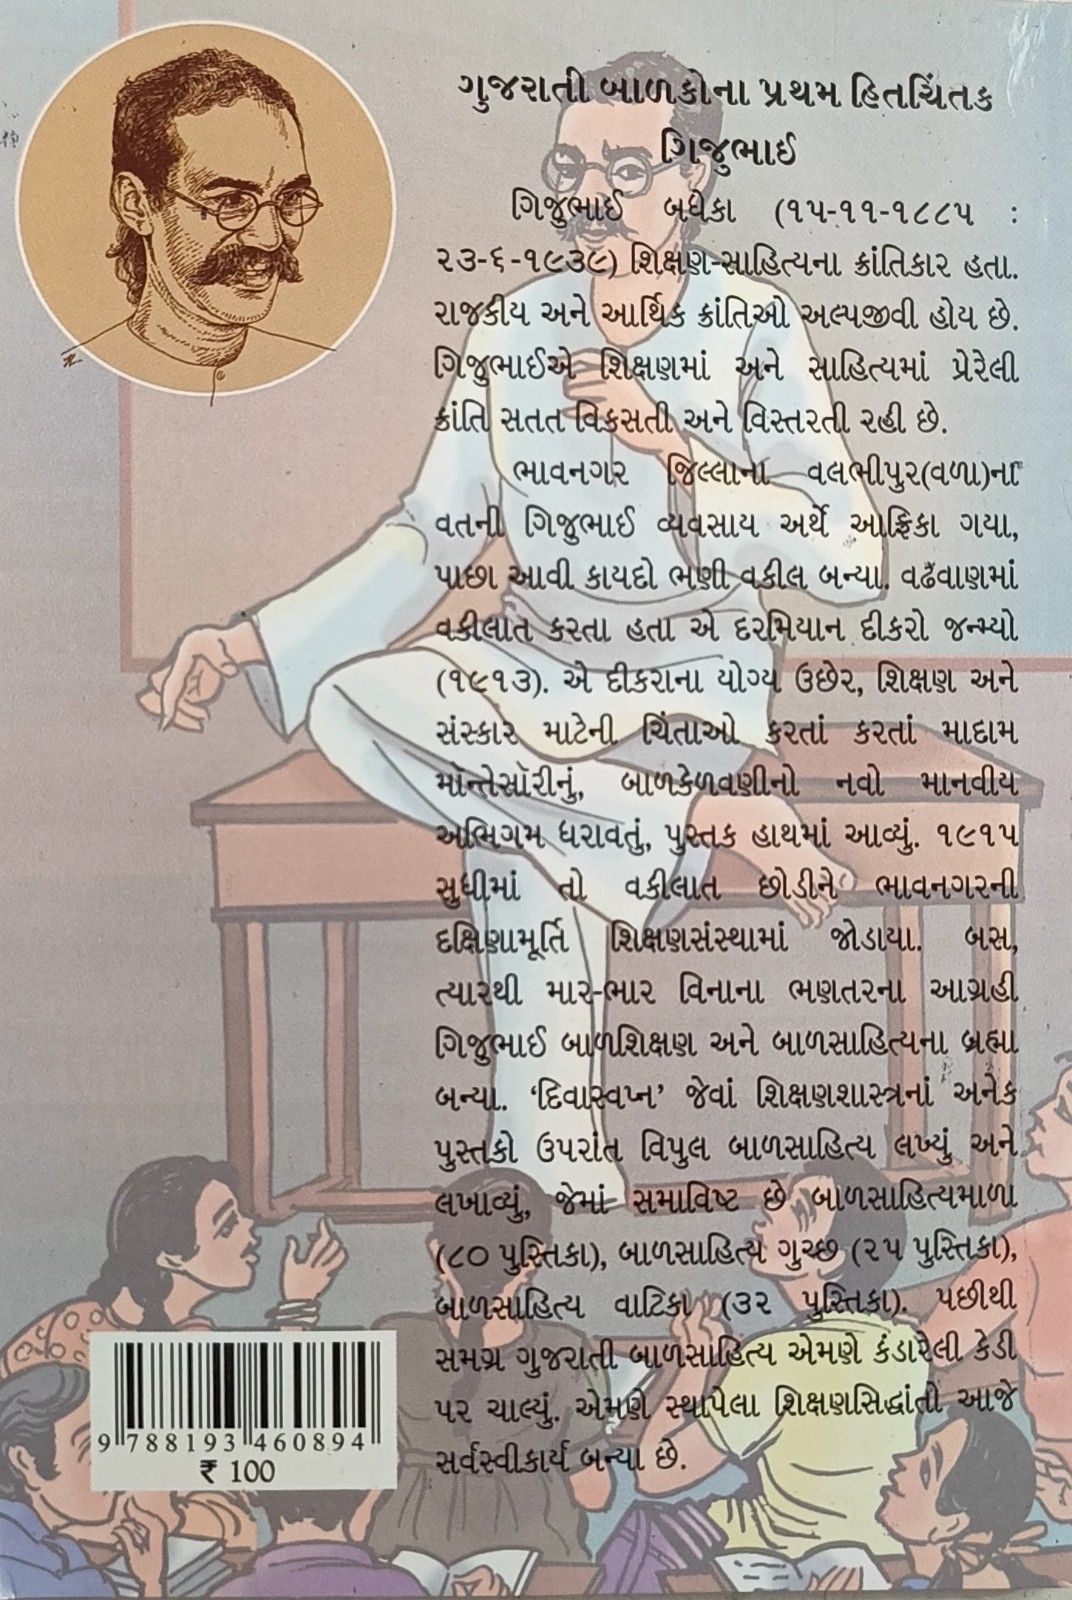 ગુજરાતી બાળકોના પ્રથમ હિતચિંતક
ગિજુભાઈ
ગિજુભાઈ બધેકા (૧૫-૧૧-૧૮૮૫ :
૨૩-૬-૧૯૩૯) શિક્ષણ-સાહિત્યના ક્રાંતિકાર હતા.
રાજકીય અને આર્થિક ક્રાંતિઓ અલ્પજીવી હોય છે.
ગિજુભાઈએ શિક્ષણમાં અને સાહિત્યમાં પ્રેરેલી
ક્રાંતિ સતત વિકસતી અને વિસ્તરતી રહી છે.
ભાવનગર જિલ્લાના વલભીપુર(વળા)ના
વતની ગિજુભાઈ વ્યવસાય અર્થે આફ્રિકા ગયા,
પાછા આવી કાયદો ભણી વકીલ બન્યા. વઢવાણમાં
વકીલાત કરતા હતા એ દરમિયાન દીકરો જન્મ્યો
(૧૯૧૩). એ દીકરાના યોગ્ય ઉછેર, શિક્ષણ અને
સંસ્કાર માટેની ચિંતાઓ કરતાં કરતાં માદામ
મૉન્તેસૉરીનું, બાળકેળવણીનો નવો માનવીય
અભિગમ ધરાવતું, પુસ્તક હાથમાં આવ્યું. ૧૯૧૫
સુધીમાં તો વકીલાત છોડીને ભાવનગરની
દક્ષિણામૂર્તિ શિક્ષણસંસ્થામાં જોડાયા. બસ,
ત્યારથી માર-ભાર વિનાના ભણતરના આગ્રહી
ગિજુભાઈ બાળશિક્ષણ અને બાળસાહિત્યના બ્રહ્મા
બન્યા. ‘દિવાસ્વપ્ન’ જેવાં શિક્ષણશાસ્ત્રનાં અનેક
પુસ્તકો ઉપરાંત વિપુલ બાળસાહિત્ય લખ્યું અને
લખાવ્યું, જેમાં સમાવિષ્ટ છે બાળસાહિત્યમાળા
(૮૦ પુસ્તિકા), બાળસાહિત્ય ગુચ્છ (૨૫ પુસ્તિકા),
બાળસાહિત્ય વાટિકા (૩૨ પુસ્તિકા). પછીથી
સમગ્ર ગુજરાતી બાળસાહિત્ય એમણે કંડારેલી કેડી
પર ચાલ્યું. એમણે સ્થાપેલા શિક્ષણસિદ્ધાંતો આજે
સર્વસ્વીકાર્ય બન્યા છે.
9 788193 460894
₹ 100